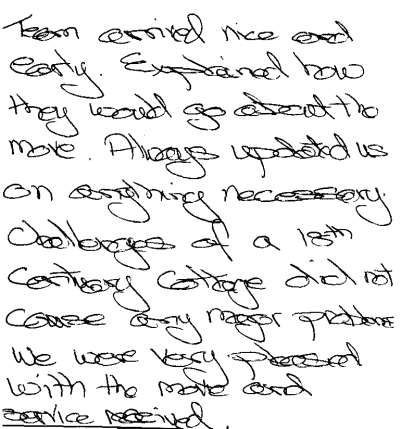 Team arrived nice and
early. Explained how
they would go about the
move. Always updated us
on anything necessary.
Challenges of a 18th
Century Cottage did not
cause any major problems
We were very pleased
with the move and
service received.